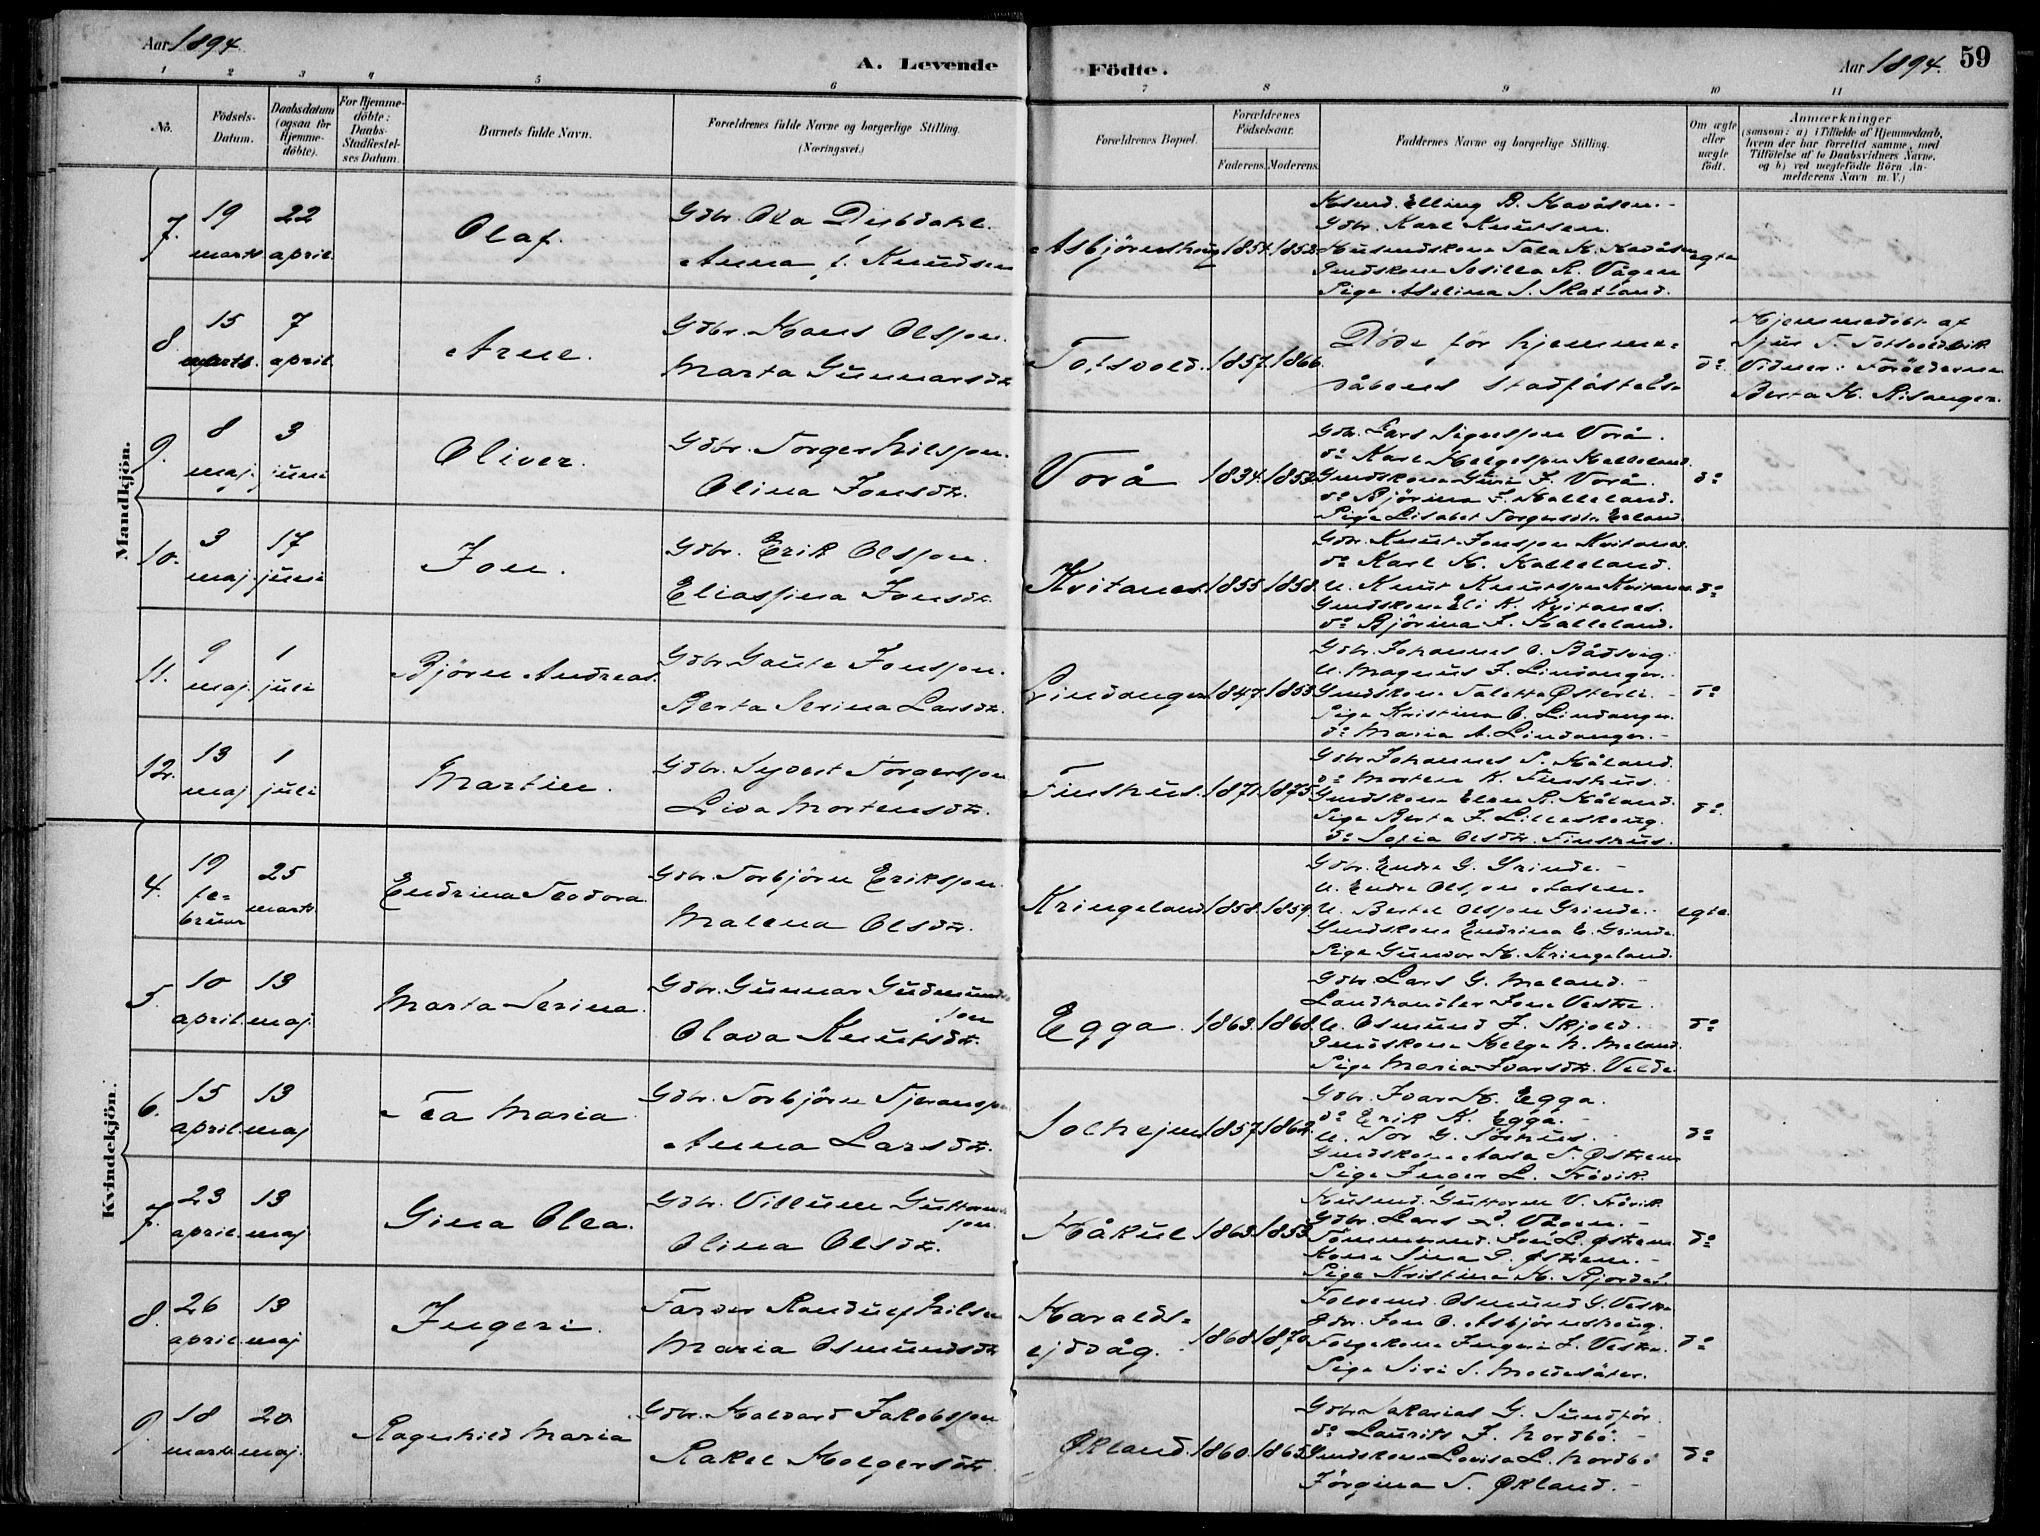 Aar 1894.
A. Levende Födte.
Aar 1894.
59
1 2 3 4 5 6 7 8 9 10 11
No.
Födsels-Datum.
Daabsdatum (ogsaa for Hjemme-döbte).
For Hjemme-döbte: Daabs-Stadfæstel-ses Datum.
Barnets fulde Navn.
Forældrenes fulde Navne og borgerlige Stilling.
(Næringsvei.)
Forældrenes Bopæl.
Forældrenes Födselsaar.
Faderens. Moderens.
Faddernes Navne og borgerlige Stilling.
Om ægte eller uægte födt.
Anmærkninger
(saasom: a) i Tilfælde af Hjemmedaab,
hvem der har forrettet samme, med
Tilföielse af to Daabsvidners Navne.
og b) ved uægtefödte Börn An-
melderens Navn m. V.)
Mandkjön.
7. 19 marts 22 april. Olaf.
Gdbr. Ola Djubdahl.
Anna f. Knudsen
Asbjörnshaug 1854. 1852.
Husmd. Elling B. Havåsen.
Gdbr. Karl Knutsen.
Husmdskone Tala H. Havåsen
Gmdskone Sesilla R. Vågen
Pige Aselina S. Skotland.
egte
8. 15 marts. 7 april. Arne.
Gdbr. Hans Olsson.
Marta Gunnarsdtr.
Totsvold. 1857. 1866.
Döde för hjemme-
dåbens stadfästelse
do.
Hjemmedöbt af
Sjur T. Totlandsvik
Vidner: Foräldrene
Berta K. Risanger.
9. 8 maj. 3 juni Oliver.
Gdbr. Torger Nilsson.
Olina Jonsdtr.
Vorå 1834. 1852.
Gdbr. Lars Sjursson Vorå.
do Karl Helgeson Halleland.
Gmdskone Guri J. Vorå.
do Björina J. Halleland.
Pige Lisabet Torgersdtr. Erland.
do
10. 3 maj. 17 juni Jon.
Gdbr. Erik Olsson.
Eliassina Jonsdtr.
Kvitanes. 1855. 1858.
Gdbr. Knut Jonsson Kvitanes.
do Karl H. Halleland.
U. Knut Knutson Kvitanes
Gmdskone Eli K. Kvitanes.
do Björina J. Halleland.
do
11. 9 maj. 1 juli Björn Andreas.
Gdbr. Gaute Jonsson.
Berta Serina Larsdtr.
Lindanger 1847. 1853.
Gdbr. Johannes O. Bådsvig.
U. Magnus J. Lindanger.
Gmdskone Taletta Østerli.
Pige Kristina O. Lindanger.
do Maria A. Lindanger.
do
12. 13 maj 1 juli Martin.
Gdbr. Syvert Torgerson
Liva Mortensdtr.
Finshus. 1871. 1875.
Gdbr. Johannes S. Håland.
do Morten K. Finshus.
Gmdskone Elen R. Håland.
Pige Berta J. Lilleskoug.
do Sofia Olsdtr. Finshus.
do.
Kvindekjön.
4. 19 fe-bruar 25 marts Endrina Teodora.
Gdbr. Torbjörn Erikson.
Malena Olsdtr.
Kringeland 1858. 1859.
Gdbr. Endre G. Grinde.
U. Endre Olson Aasen.
U. Bertel Olson Grinde.
Gmdskone Endrina E. Grinde.
Pige Gunvor H. Kringeland.
egte.
5. 10 april. 13 maj. Marta Serina.
Gdbr. Gunnar Gudmunds-
son
Olava Knutsdtr.
Egga. 1863. 1868.
Gdbr. Lars G. Meland.
Landhandler Jone Vestre.
U. Osmund J. Skjold.
Gmdskone Helga N. Meland.
Pige Maria Ivarsdtr. Velde
do
6. 15 april. 13 maj Tea Maria
Gdbr. Torbjörn Tjeranson
Anna Larsdtr.
Solhejm 1857. 1862.
Gdbr. Ivar H. Egga.
do Erik K. Egga.
U. Tor G. Söthus.
Gmdskone Aasa T. Østrem
Pige Inger L. Trövik.
do
7. 23 april. 13 maj Gina Olea.
Gdbr. Villum Guttorms-
son.
Olina Olsdtr.
Håkul 1863. 1853.
Husmd. Guttorm V. Trövik.
Gdbr. Lars L. Vågen.
Tömmermd. Jon L. Østrem
Kone Sina G. Østrem.
Pige Kristina H. Rjordal.
do
8. 26 april. 13 maj Ingeri.
Farver Randulf Nilsen
Maria Osmundsdtr.
Haralds-
ejdvåg. 1868. 1870.
Folgemd. Osmund G. Vestre
Gdbr. Jon O. Asbjörnshaug.
Folgekone Ingeri J. Vestre.
Pige Siri S. Moldesäter.
do
9. 18 marts. 20 maj. Ragnhild Maria
Gdbr. Halvard Jakobson
Rakel Holgersdtr.
Økland. 1860. 1865.
Gdbr. Sakarias G. Sundför.
do Laurits J. Nordbö.
Gmdskone Lovisa L. Nordbö
Jörgina T. Økland.
do